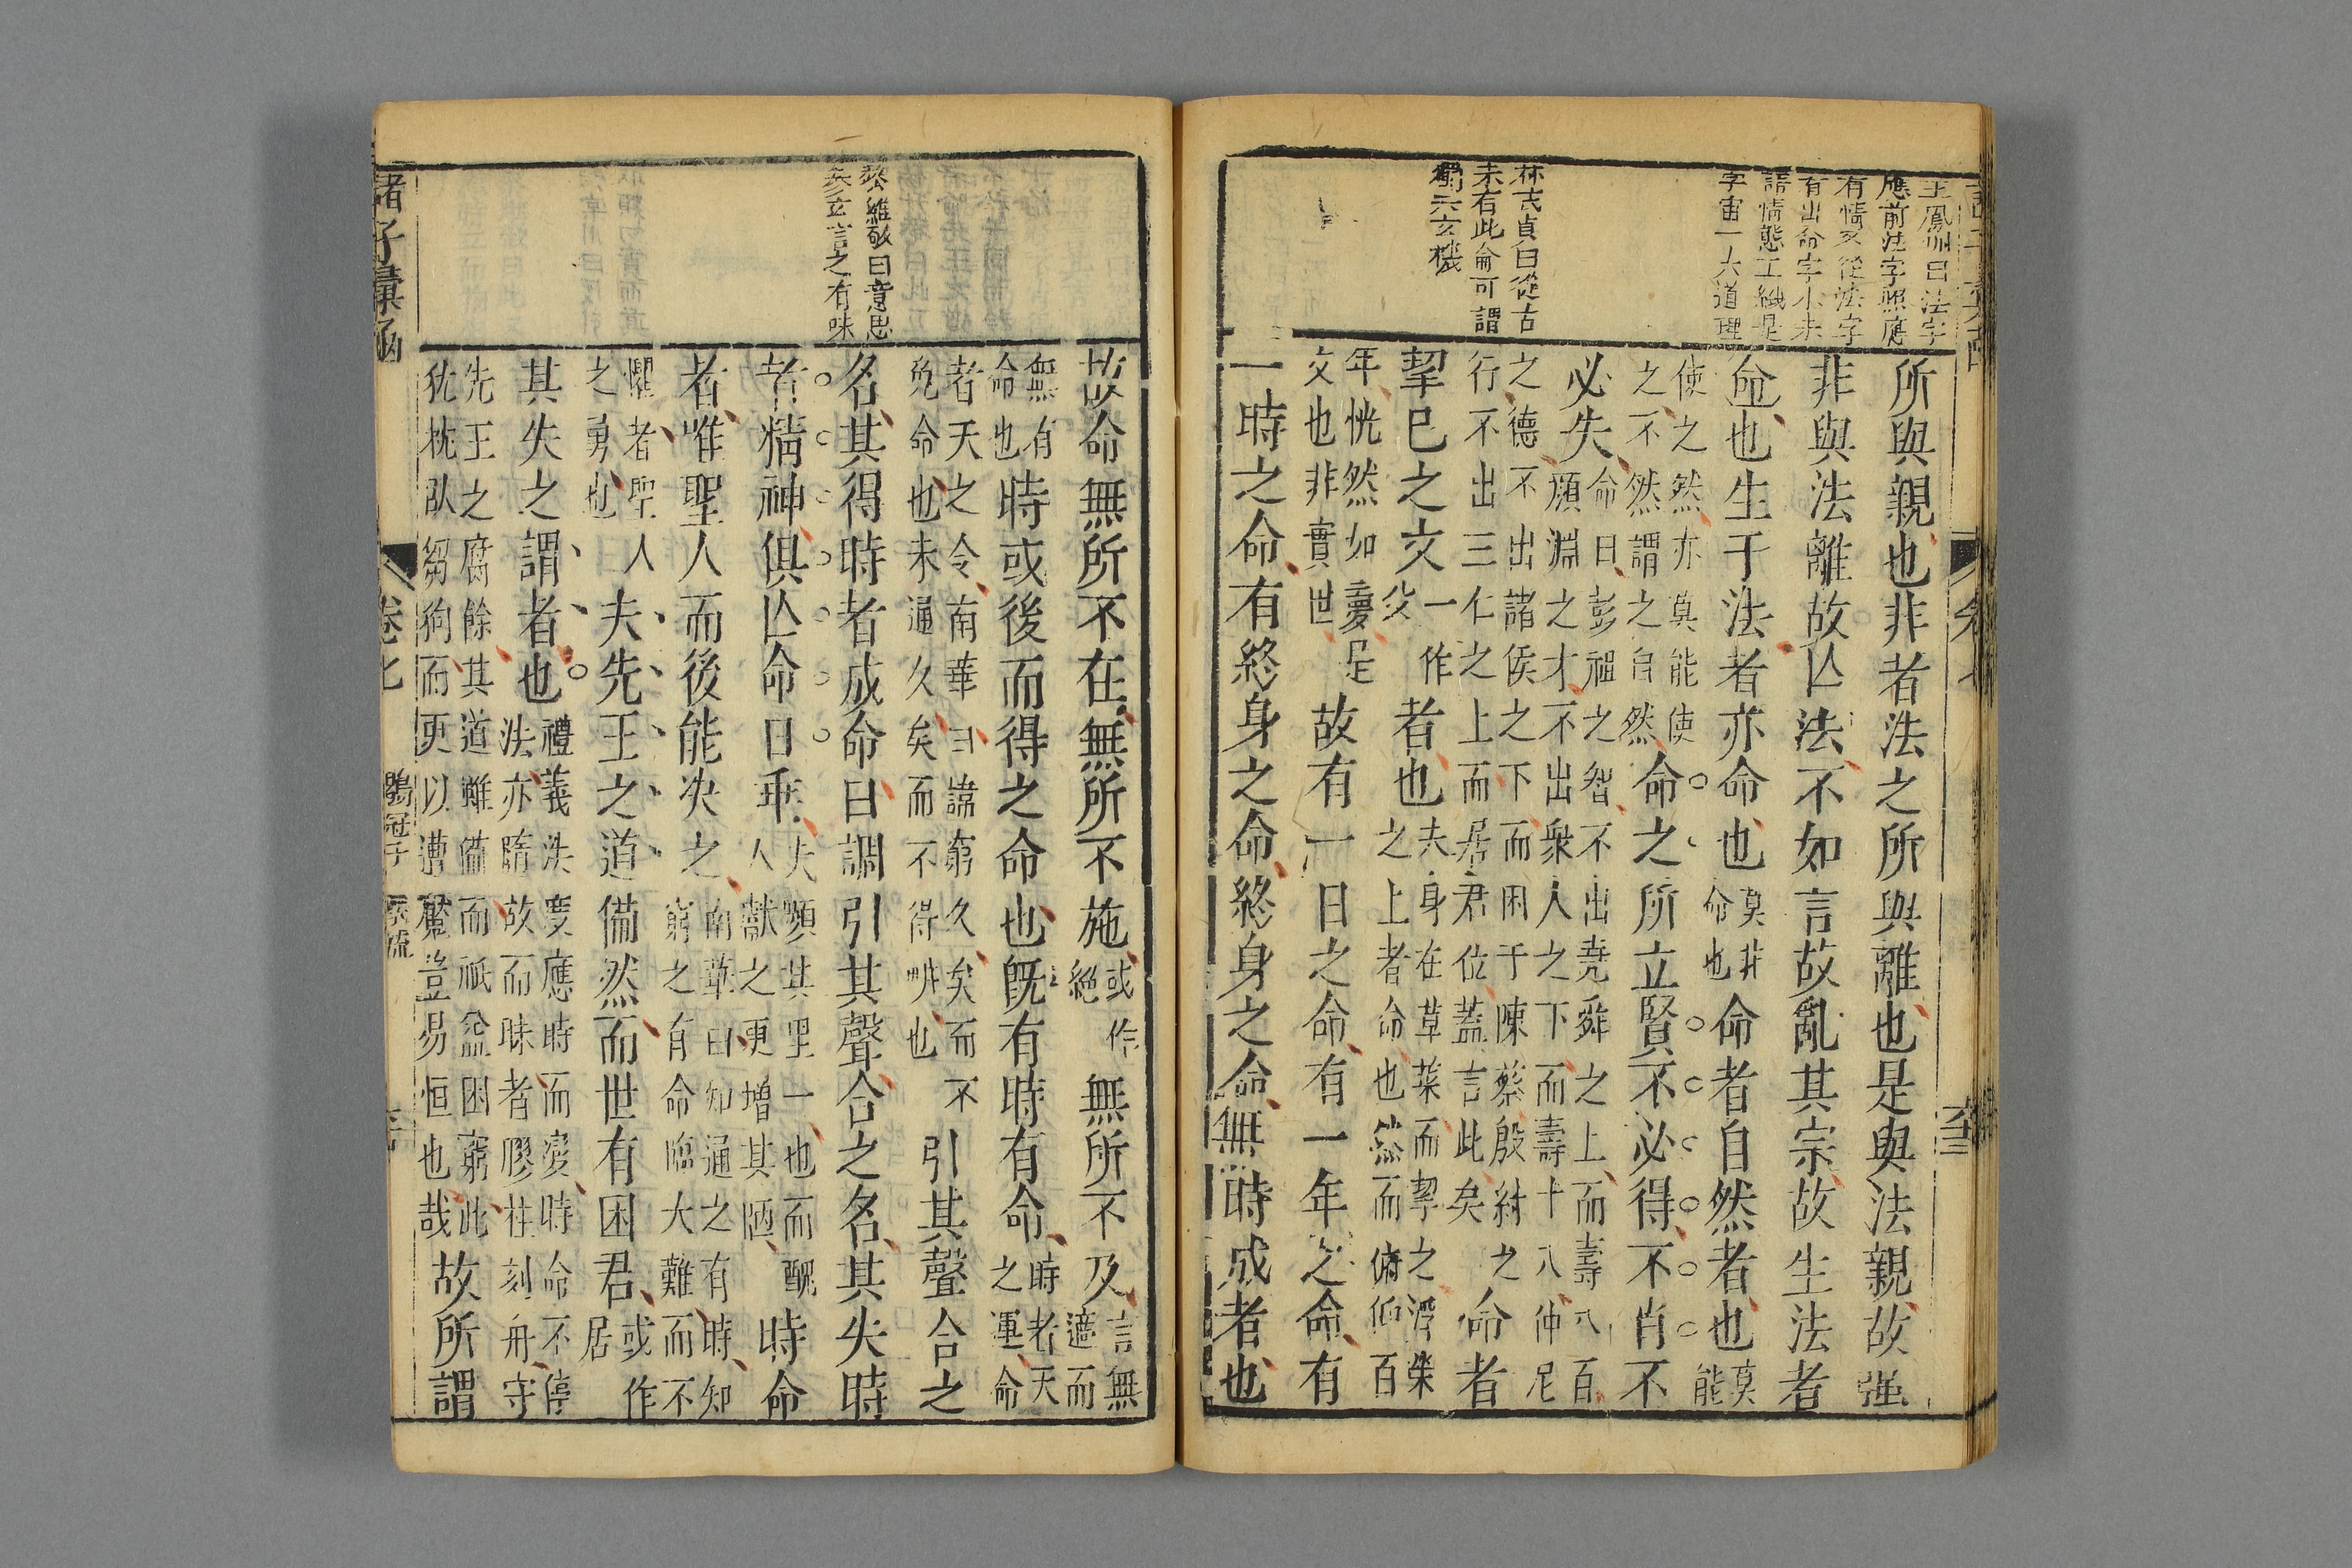 王鳳洲曰法字
應前法字照應
有情又從法字
有出命字小未
請情態工緻是
宇宙一大道理
林 貞白從古
未有此侖可謂
天玄機
所與親也非者法之所與離也是與法親故强
非與法離故亾法不如言故亂其宗故生法者
命也生于法者亦命也
莫非
命也
命者自然者也
莫
能
使之然亦莫能使
之不然謂之自然
命之所立賢不必得不肖不
必失
命曰彭祖之智不出堯舜之上而壽八百
顔淵之才不出衆人之下而壽十八仲尼
之德不出諸侯之下而困于陳蔡殷紂之
行不出三仁之上而居君位蓋言此矣
命者
挈巳之文
一作
父
者也
夫身在草萊而挈之滑樂
之上者命也然而俯仰百
年恍然如憂足
文也非實世
故有一日之命有一年之命有
一時之命有終身之命終身之命無時成者也
故命無所不在無所不施
或作
絕
無所不及
言無
適而
無有
命也
時或後而得之命也旣有時有命
時者天
之運命
者天之令南華曰諱窮久矣而不
免命也未通久矣而不得㫤也
引其聲合之
名其得時者成命曰調引其聲合之名其失時
者精神俱亾命曰乖
夫顰其里一也而醜
人獻之更增其陋
時命
者唯聖人而後能决之
南華曰知通之有時知
窮之有命臨大難而不
懼者聖人
之勇也
夫先王之道備然而世有困君
或作
居
其失之謂者也
禮義法度應時而變時命不停
法亦隋故而昧者膠柱刻舟守
先王之腐餘其道雖備而祇益困窮此
犹枕臥芻狗而更以遭魘豈易恒也哉
故所謂
諸子彙函
卷七
鶡冠子
公維敬曰意思
玄言之有味